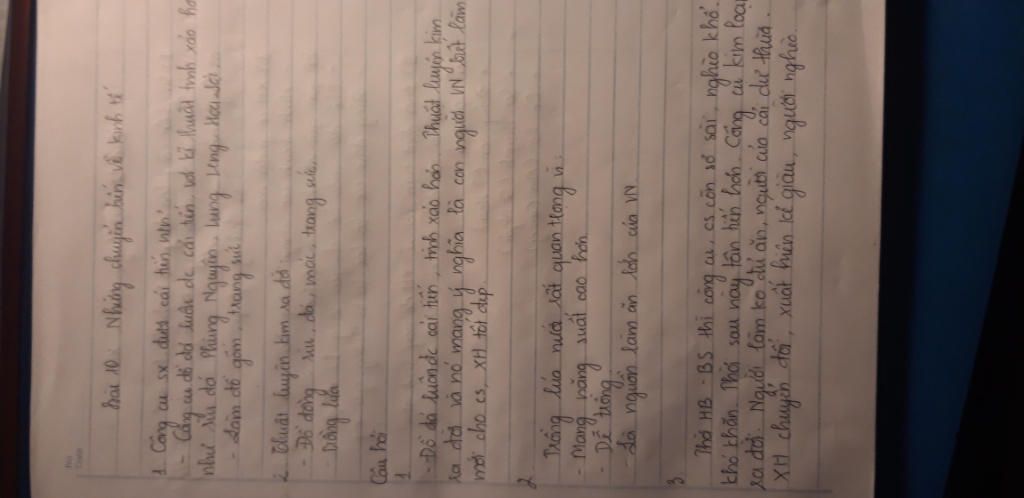 No
Date
Bài 10: Những chuyển biến về kinh tế
1. Công cụ sx được cải tiến ntn?
- Công cụ đồ đá luôn đc cải tiến với kĩ thuật tinh xảo hơn
như rìu đá Phùng Nguyên, Lung Leng, Hoa Lộc...
- Làm đồ gốm, trang sức
2. Thuật luyện kim ra đời:
- Đồ đồng: rìu, đá, mác, trang sức.
- Trồng lúa
Câu hỏi
1
- Đồ đá luôn đc cải tiến, tinh xảo hơn. Thuật luyện kim
ra đời và nó mang ý nghĩa là con người VN biết làm
mới cho cs, XH tốt đẹp
2.
Trồng lúa nước rất quan trọng vì:
- Mang năng suất cao hơn
- Dễ trồng
- Là nguồn làm ăn lớn của VN
3.
Thời HB - BS thì công cụ, cs còn sơ sài, nghèo khổ,
khó khăn. Thời sau này tân tiến hơn. Công cụ kim loại
ra đời. Người làm ko đủ ăn, người của cải dư thừa.
XH chuyển đổi, xuất hiện kẻ giàu, người nghèo.